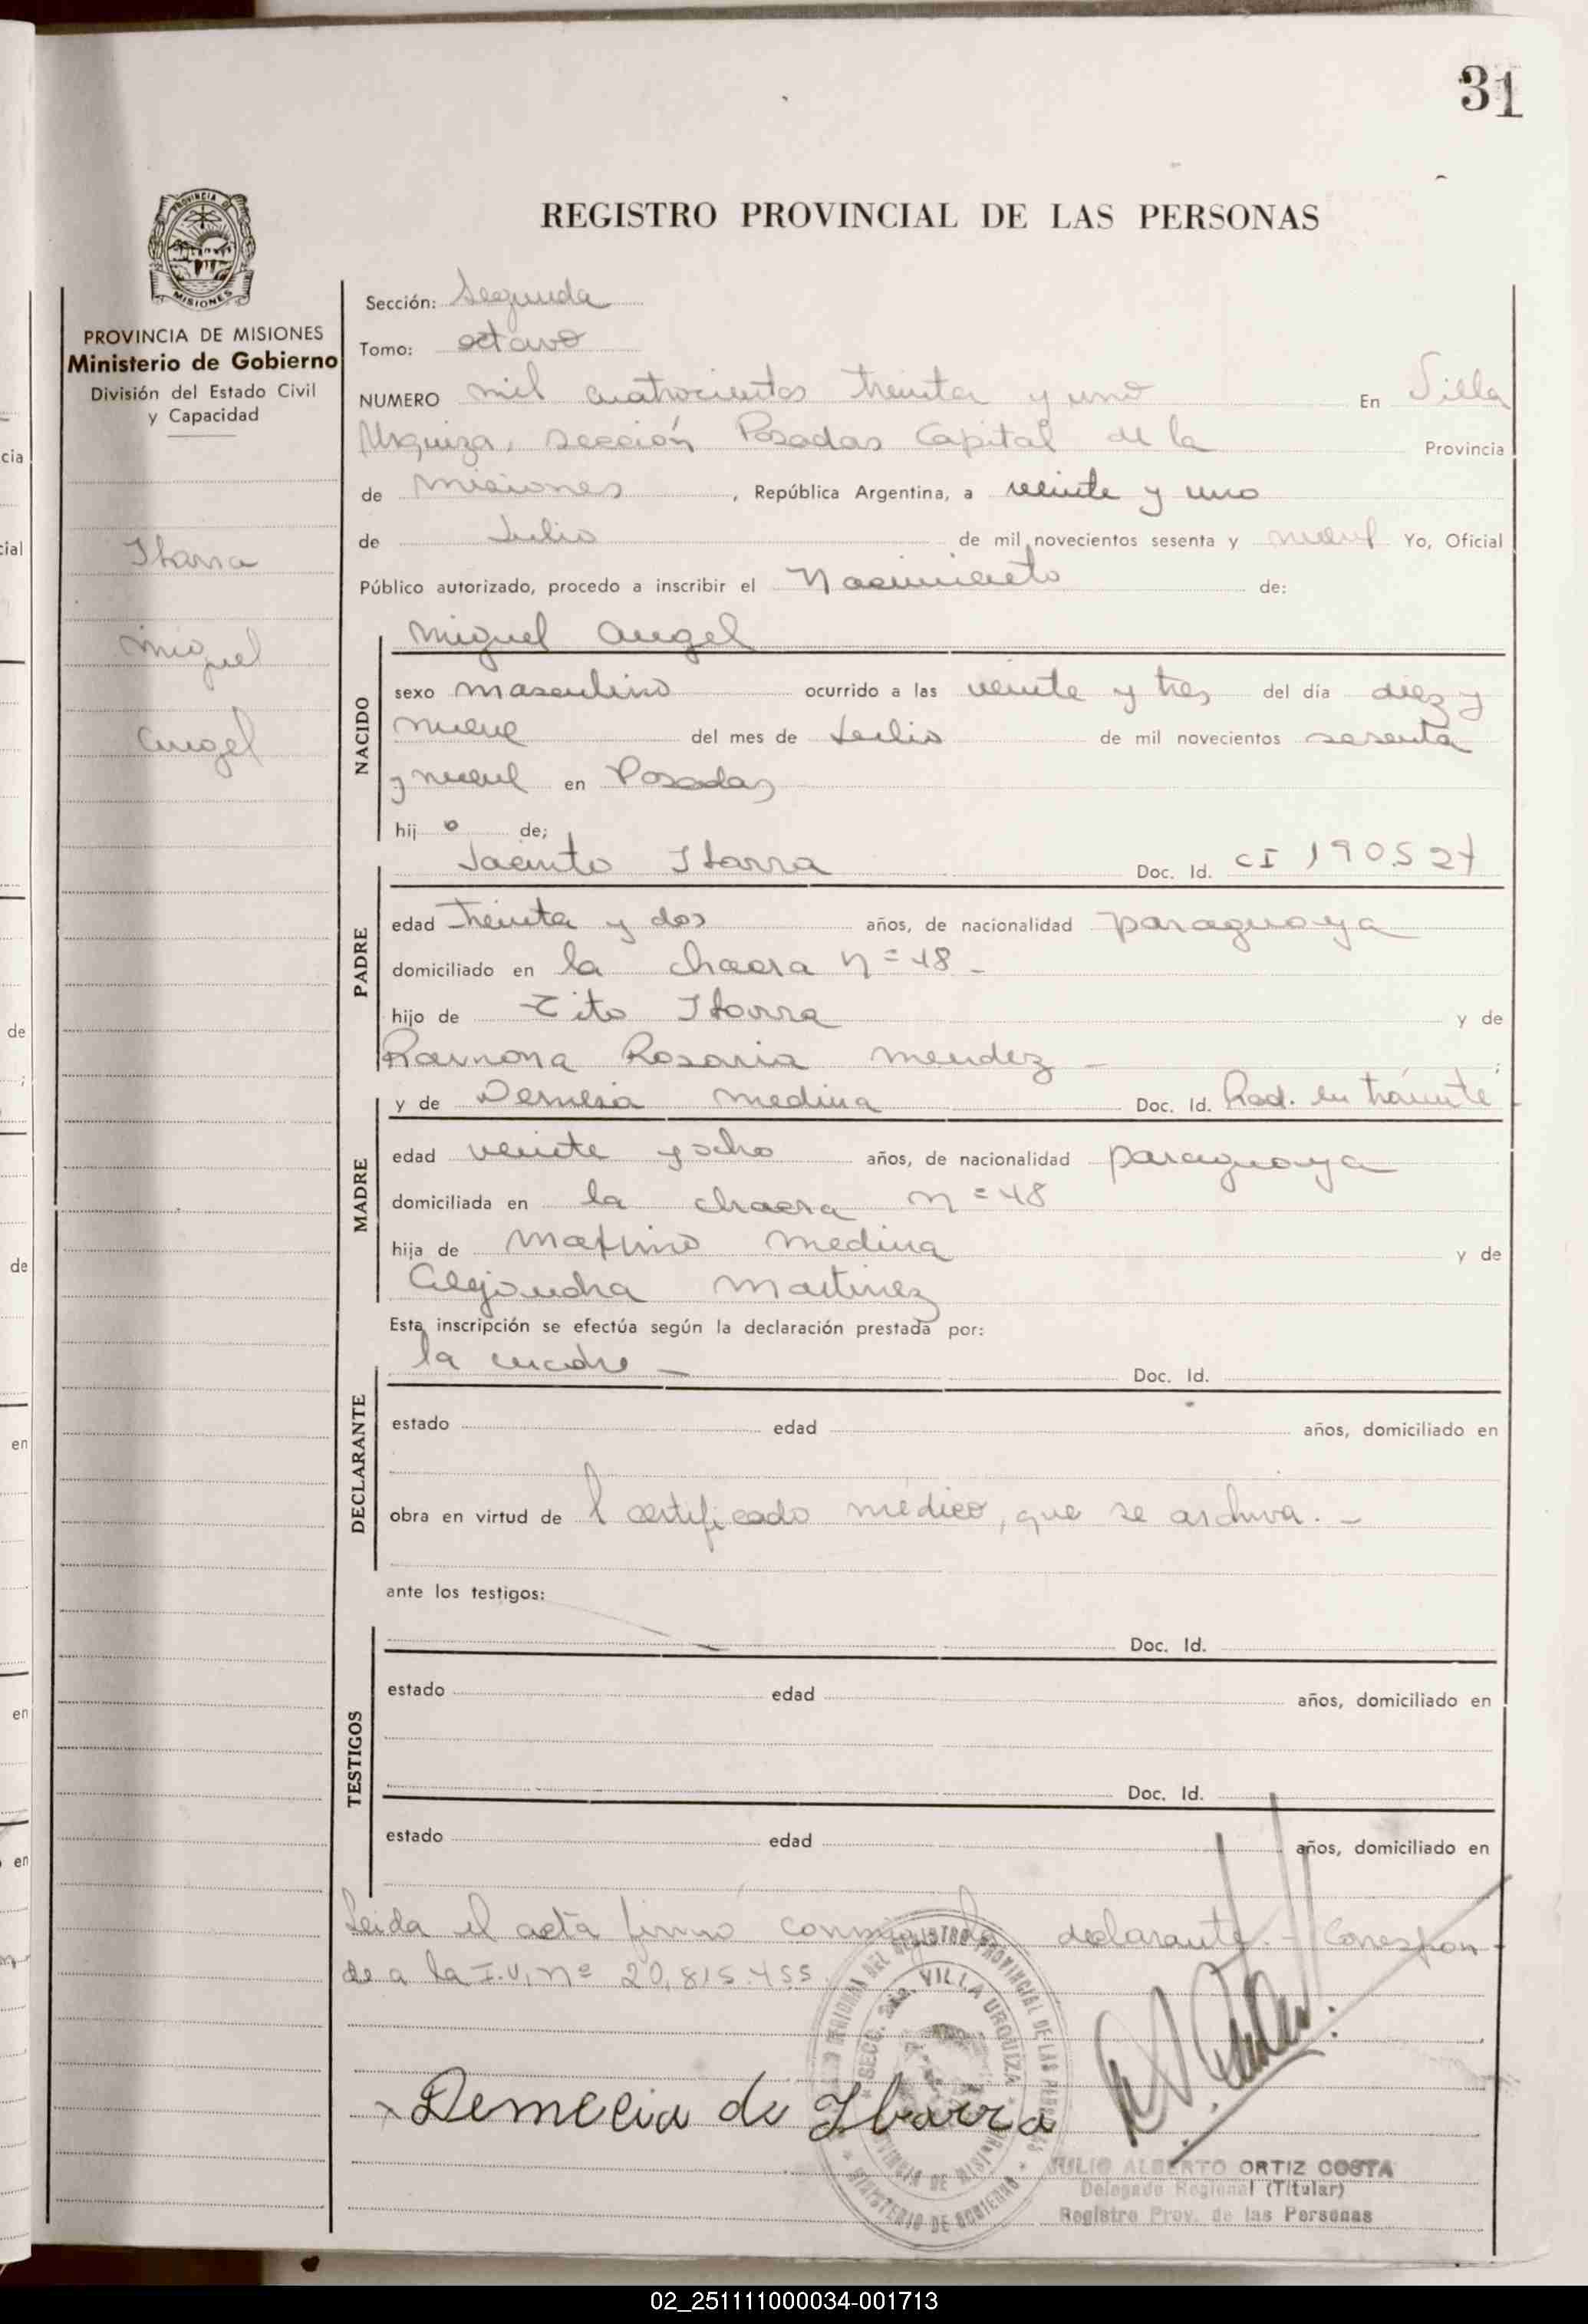 31
REGISTRO PROVINCIAL DE LAS PERSONAS
PROVINCIA DE MISIONES
Ministerio de Gobierno
División del Estado Civil
y Capacidad
Ibarra
Miguel
Angel
Sección: Segunda
Tomo: octavo
NUMERO mil cuatrocientos treinta y uno En Villa
Urquiza, sección Posadas Capital de la Provincia
de Misiones, República Argentina, a veinte y uno
de Julio de mil novecientos sesenta y nueve Yo, Oficial
Público autorizado, procedo a inscribir el Nacimiento de:
Miguel Angel
NACIDO
sexo masculino ocurrido a las veinte y tres del día diez y
nueve del mes de Julio de mil novecientos sesenta
y nueve en Posadas
hijo de;
Jacinto Ibarra Doc. Id. CI 190.527
PADRE
edad treinta y dos años, de nacionalidad paraguaya
domiciliado en la chacra n=48 -
hijo de Tito Ibarra y de
Ramona Rosaria Mendez - ;
y de Demesia Medina Doc. Id. Rad. en trámite
MADRE
edad veinte y ocho años, de nacionalidad paraguaya
domiciliada en la chacra n=48
hija de Maximo Medina y de
Alejandra Martinez
Esta inscripción se efectúa según la declaración prestada por:
la madre - Doc. Id.
DECLARANTE
estado edad años, domiciliado en
obra en virtud de l certificado médico, que se archiva. -
ante los testigos:
Doc. Id.
TESTIGOS
estado edad años, domiciliado en
Doc. Id.
estado edad años, domiciliado en
Leida el acta firma conmigo la declarante. - Correspon-
de a la I.U. nº 20,815.455
Demecia de Ibarra
SECC. 2da. VILLA URQUIZA
PROVINCIA DE MISIONES
MINISTERIO DE GOBIERNO
JULIO ALBERTO ORTIZ COSTA
Delegado Regional (Titular)
Registro Prov. de las Personas
02_251111000034-001713